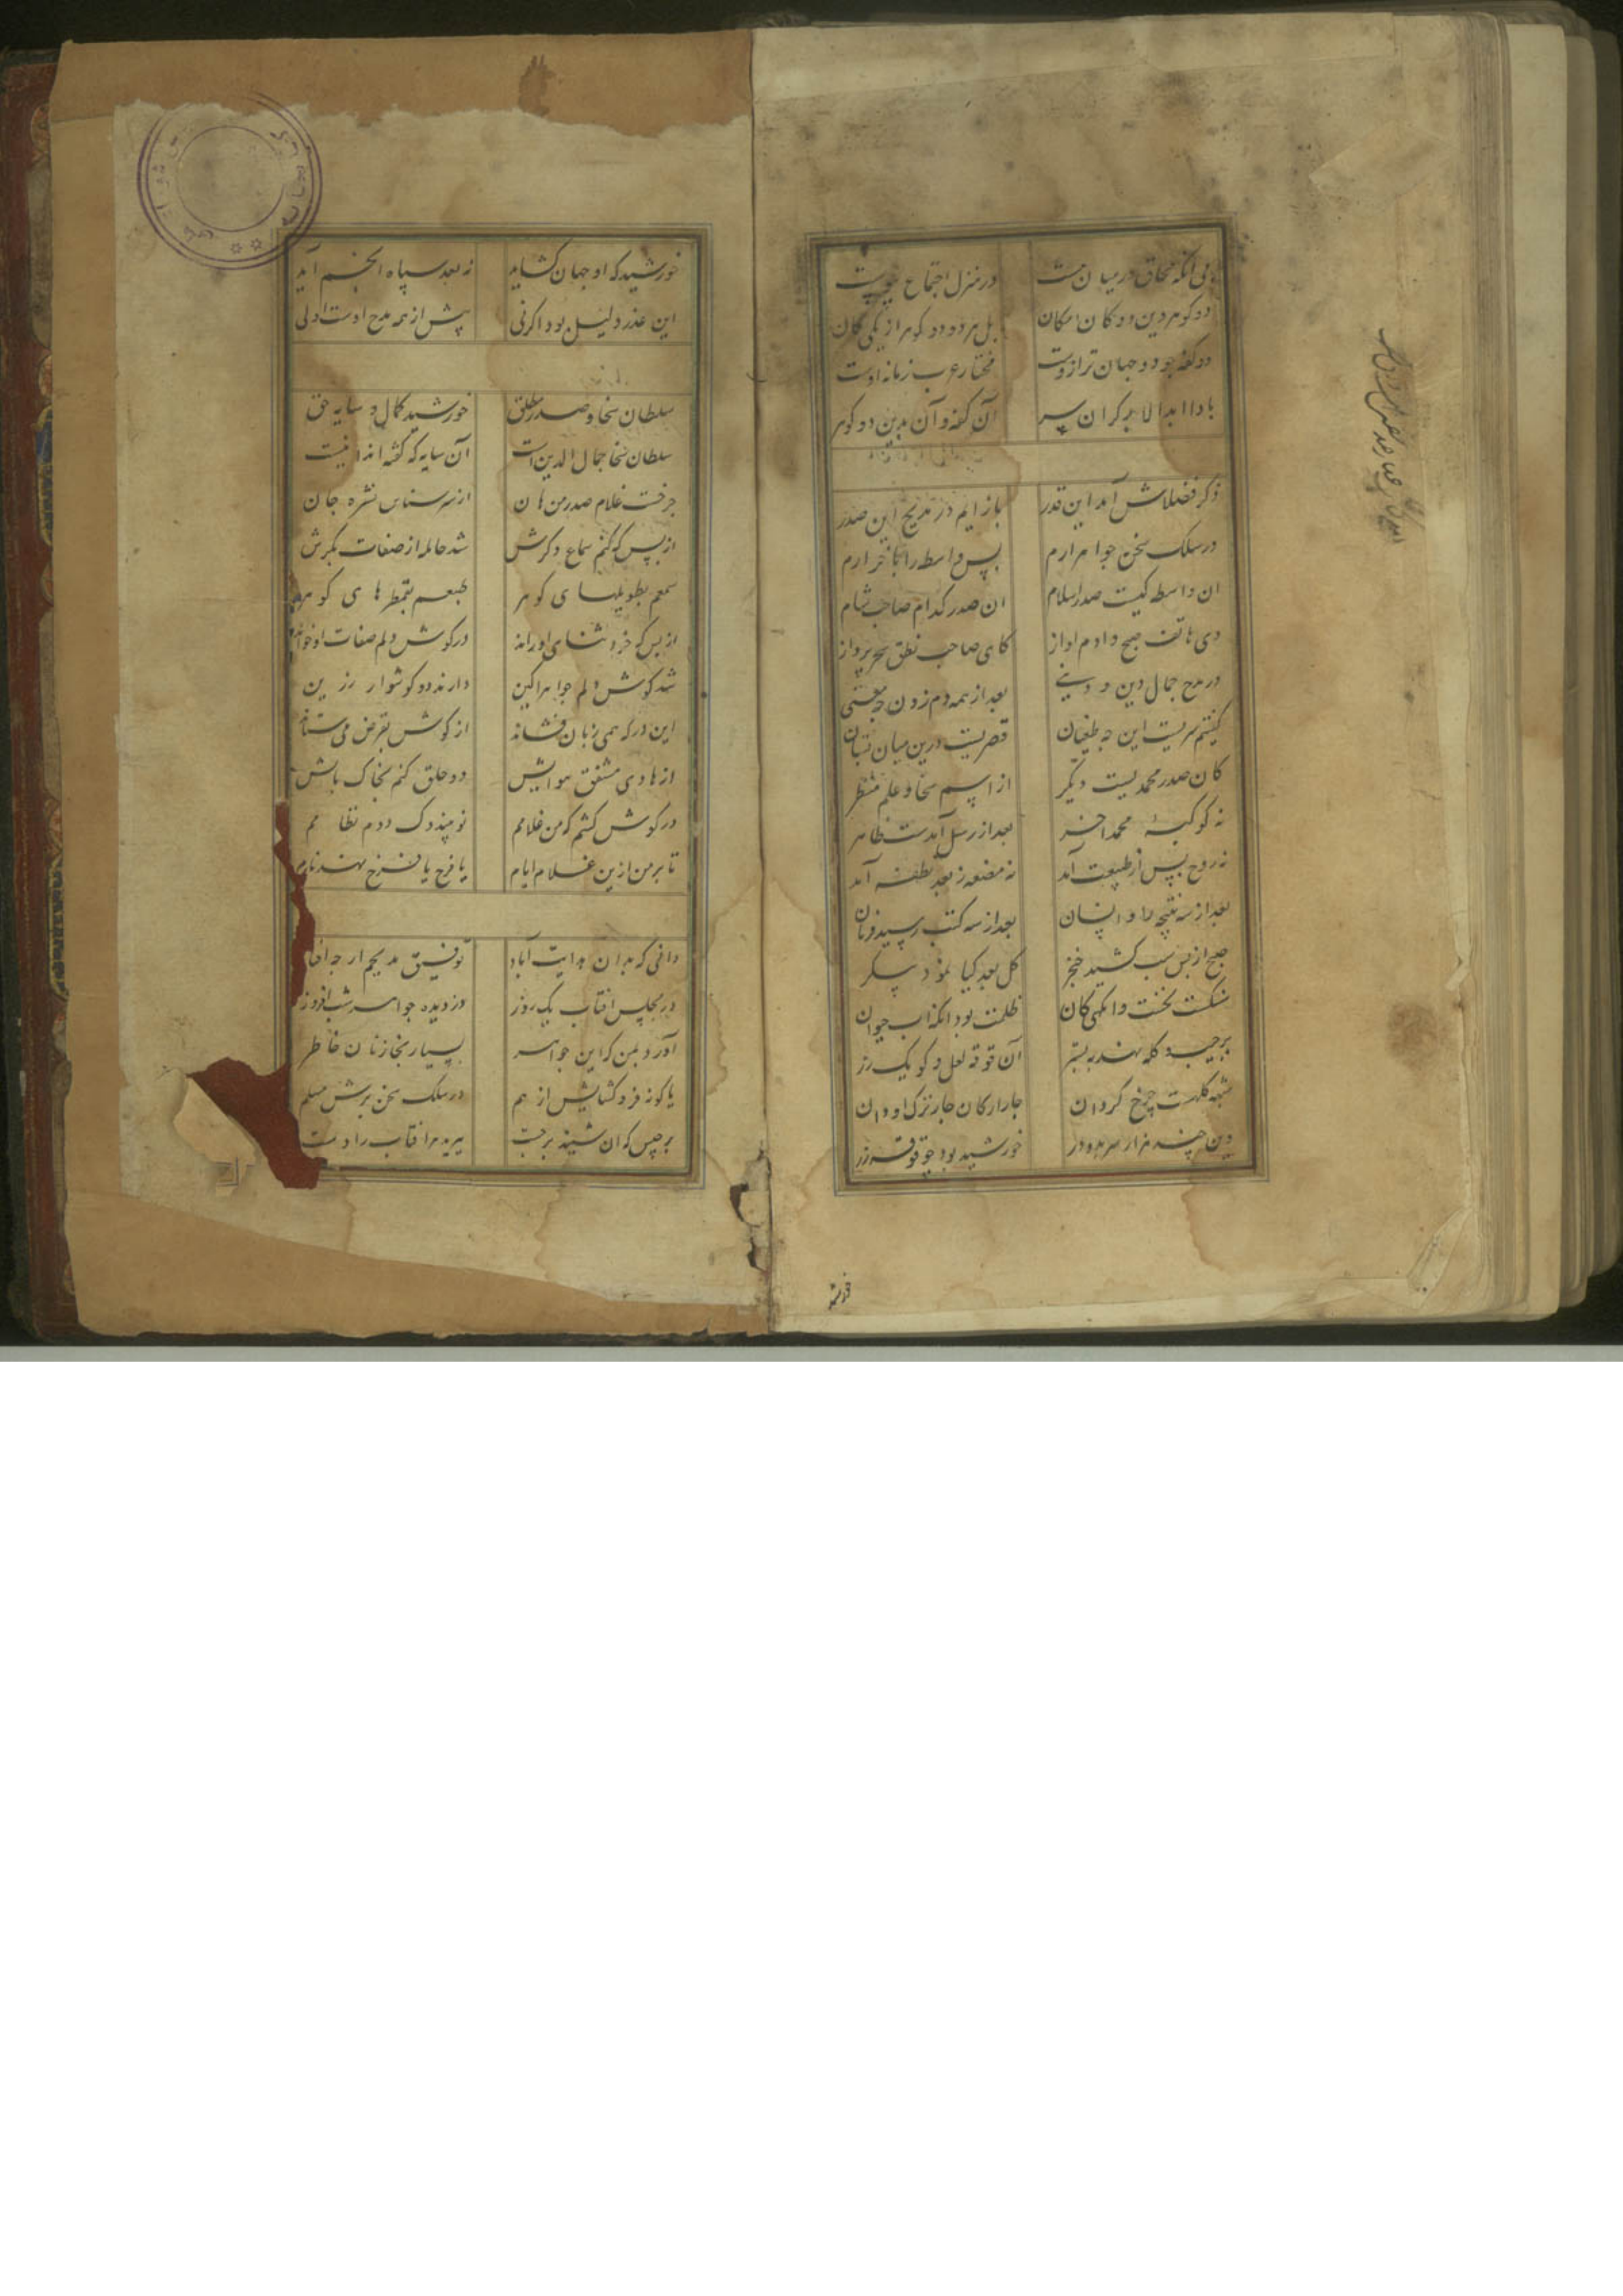 بی آنکه محاق در میان هست در منزل اجتماع پیوست
دو کوهر دین دو کان امکان بل هر دو دو کوهر از یکی کان
دو کفه جود دو جهان ترازوست مختار عرب زبانه اوست
بادا ابدا لا بد کران سر آن کفه و آن بدین دو کوهر
ذکر فضلاش آمد این قدر باز ایم در مدیح این صدر
در سلک سخن جواهر ارم پس واسطه را بآخر ارم
ان واسطه کیست صدر اسلام ان صدر کدام صاحب شام
دی هاتف صبح دادم اواز کای صاحب نطق سحر پرداز
در مدح جمال دین و دنیی بعد از همه دم زدن چه معنی
کفتم سریست این چه طغیان قصریست درین میان نه تبیان
کان صدر محمدیست دیگر از اسم سخا و علم منظر
نه کوکبهٔ محمد اخر بعد از رسل آمدست ظاهر
نه روح پس از طبیعت آمد نه مضغه ز بعد نطفه آمد
بعد از سه نتیجه زاد انسان بعد از سه کتب رسید فرقان
صبح از پس شب کشید خنجر کل بعد کیا نمود پیکر
سنکست نخست وانکهی کان ظلمت بود انکه اب حیوان
برجیب کله نهند بهتر آن قوقه لعل و کویک زر
شبه کلهست چرخ کردان چار ارکان چار ترک او دان
وین چند هزار سر بدو در خورشید بود چو قوقه زر
خورشید
خورشید که او جهان کشاید نه بعد سپاه انجم آید
این عذر دلیل بود اکرنی پیش از همه مدح اوست اولی
سلطان سخا و صدر مطلق خورشید کمال و سایه حق
سلطان سخا جمال الدین است آن سایه که کفته اند اینست
چرخست غلام صدر من هان از سر سناس نشره جان
از پس که کنم سماع ذکرش شد حامله از صفات بکرش
سمعم بطویلهای کوهر طبعم بقمطرهای کوهر
از بس که خرد ثنای او راند در کوش دلم صفات او خواند
شد کوش دلم جواهر اکین دارند دو کوشوار رزین
این در که همی زبان فشاند از کوش بقرض می ستاند
از هادی مشفق هوایش دو حلق کنم بخاک پایش
در کوش کشم که من غلامم نو هندوک دوم نظامم
تا بر من ازین غلام ایام یا فرح یا فرخ نهند نام
دانی که بدان هدایت آباد توفیق مدیحم ار چه افتاد
در مجلس افتاب یک روز دزدیده جواهر شب افروز
آورد بمن که این جواهر بسپار بخازنان خاطر
یا کونه فرو کشایش از هم در سلک سخن برش مسلم
برجیس که ان شنید برجست پیرامن افتاب را دست